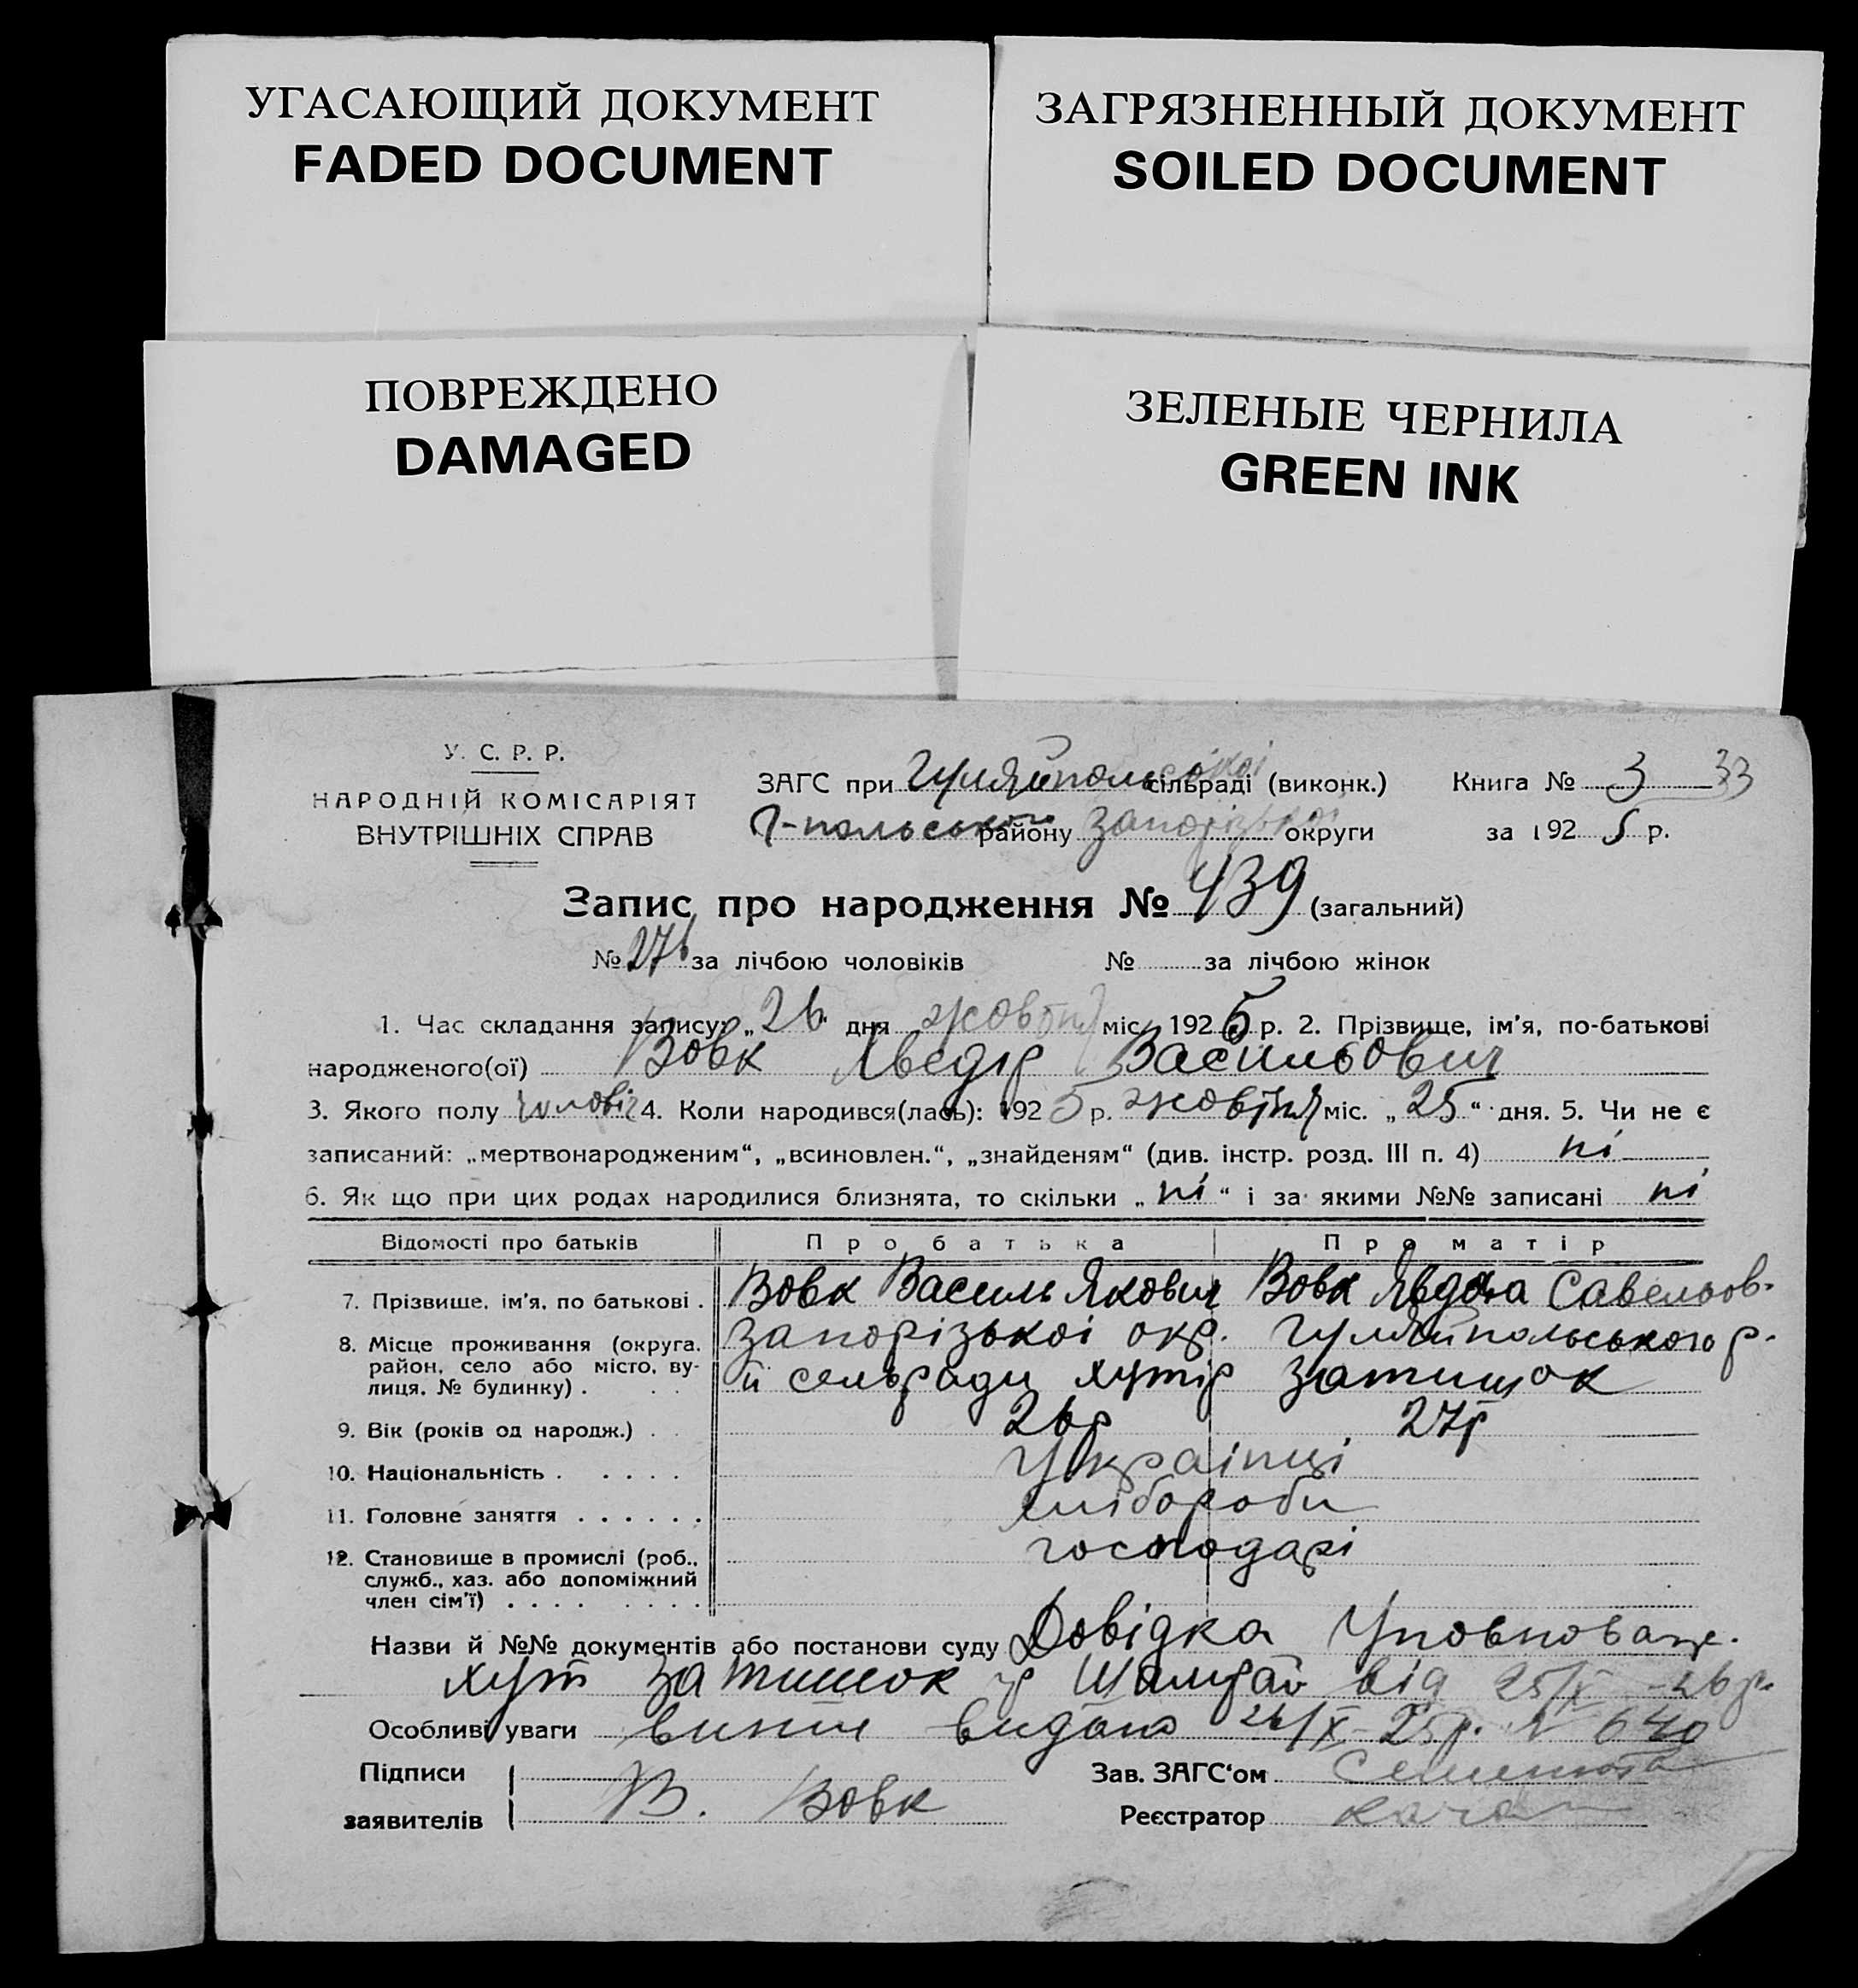 УГАСАЮЩИЙ ДОКУМЕНТ
FADED DOCUMENT
ЗАГРЯЗНЕННЫЙ ДОКУМЕНТ
SOILED DOCUMENT
ПОВРЕЖДЕНО
DAMAGED
ЗЕЛЕНЫЕ ЧЕРНИЛА
GREEN INK
У. С. Р. Р.
НАРОДНІЙ КОМІСАРІЯТ
ВНУТРІШНІХ СПРАВ
ЗАГС при Гуляйпольській сільраді (виконк.) Книга № 3 33
Г-польського району Запорізької округи за 1925 р.
Запис про народження № 439 (загальний)
№ 276 за лічбою чоловіків № за лічбою жінок
1. Час складання запису: „26“ дня жовтня міс. 1925 р. 2. Прізвище, ім'я, по-батькові
народженого(ої) Вовк Хведір Васильович
3. Якого полу чоловіч 4. Коли народився(лась): 1925 р. жовтня міс. „25“ дня. 5. Чи не є
записаний: „мертвонародженим“, „всиновлен.“, „знайденям“ (див. інстр. розд. III п. 4) ні
6. Як що при цих родах народилися близнята, то скільки „ні“ і за якими №№ записані ні
Відомості про батьків Про батька Про матір
7. Прізвище, ім'я, по батькові . Вовк Василь Якович Вовк Явдоха Савельов.
8. Місце проживання (округа, район, село або місто, вулиця, № будинку) . Запорізькоі окр. Гуляйпольського р.
й сельради хутір Затишок
9. Вік (років од народж.) . . 26р 27р
10. Національність . . . . . Українці
11. Головне заняття . . . . . . хлібороби
12. Становище в промислі (роб., служб., хаз. або допоміжний член сім'ї) . . . . господарі
Назви й №№ документів або постанови суду Довідка Уповноваже.
хут Затишок від 25/X
Особливі уваги видано 26/X-25р. № 640
Підписи
заявителів В. Вовк
Зав. ЗАГС'ом
Реєстратор